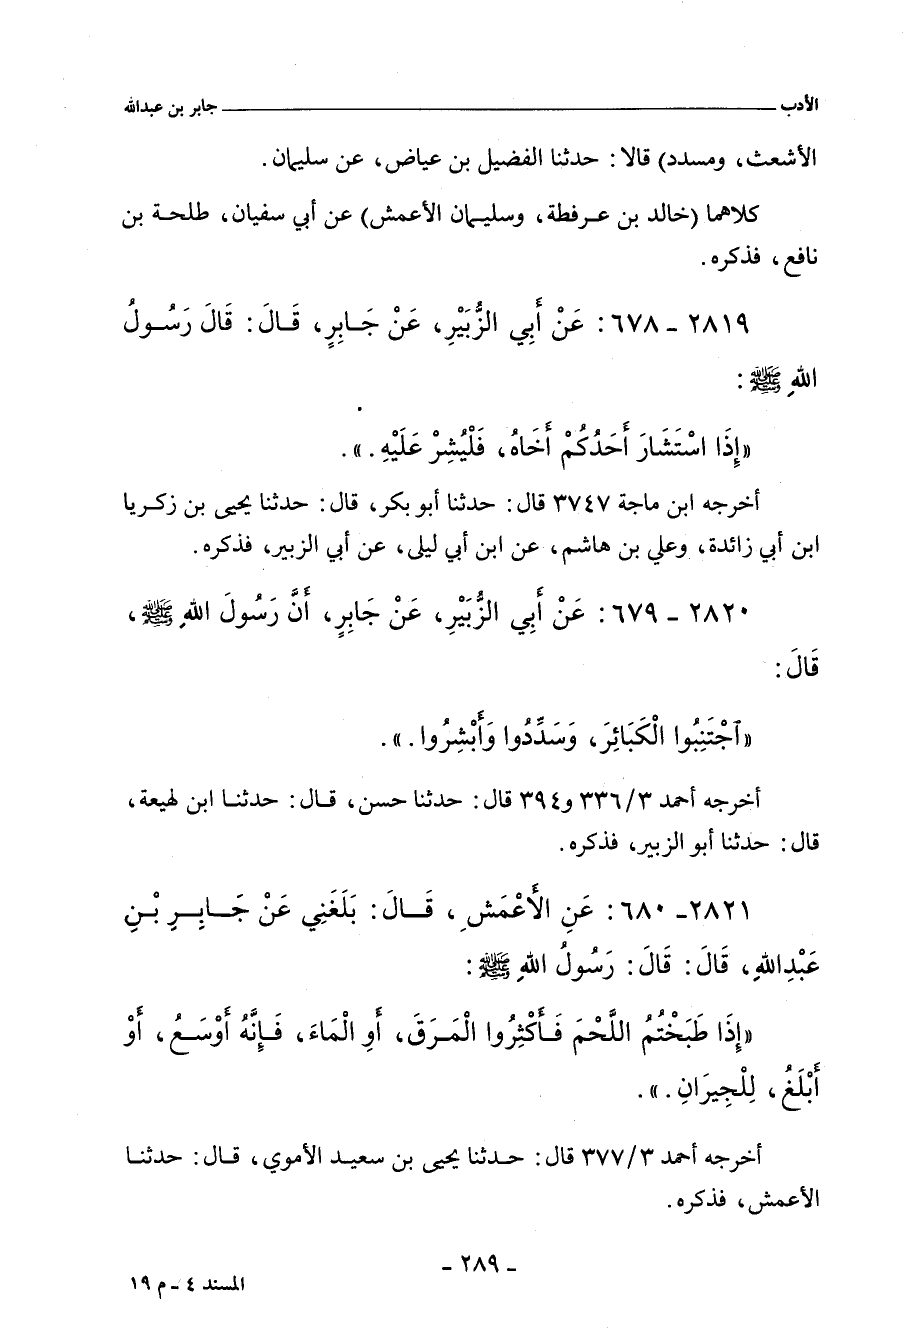 الأدب ــــــ جابر بن عبدالله
الأشعث، ومسدد) قالا: حدثنا الفضيل بن عياض، عن سليمان.
كلاهما (خالد بن عرفطة، وسليمان الأعمش) عن أبي سفيان، طلحة بن
نافع، فذكره.
٢٨١٩ - ٦٧٨: عَنْ أَبِي الزُّبَيْرِ، عَنْ جَابِرٍ، قَالَ: قَالَ رَسُولُ
اللهِ ﷺ:
«إِذَا اسْتَشَارَ أَحَدُكُمْ أَخَاهُ، فَلْيُشِرْ عَلَيْهِ.».
أخرجه ابن ماجة ٣٧٤٧ قال: حدثنا أبو بكر، قال: حدثنا يحيى بن زكريا
ابن أبي زائدة، وعلي بن هاشم، عن ابن أبي ليلى، عن أبي الزبير، فذكره.
٢٨٢٠ - ٦٧٩: عَنْ أَبِي الزُّبَيْرِ، عَنْ جَابِرٍ، أَنَّ رَسُولَ اللهِ ﷺ،
قَالَ:
«اَجْتَنِبُوا الْكَبَائِرَ، وَسَدِّدُوا وَأَبْشِرُوا.».
أخرجه أحمد ٣/٣٣٦ و٣٩٤ قال: حدثنا حسن، قال: حدثنا ابن لهيعة،
قال: حدثنا أبو الزبير، فذكره.
٢٨٢١- ٦٨٠: عَنِ الْأَعْمَشِ، قَالَ: بَلَغَنِي عَنْ جَابِرِ بْنِ
عَبْدِاللهِ، قَالَ: قَالَ: رَسُولُ اللهِ ﷺ:
«إِذَا طَبَخْتُمُ اللَّحْمَ فَأَكْثِرُوا الْمَرَقَ، أَوِ الْمَاءَ، فَإِنَّهُ أَوْسَعُ، أَوْ
أَبْلَغُ، لِلْجِيرَانِ.».
أخرجه أحمد ٣/٣٧٧ قال: حدثنا يحيى بن سعيد الأموي، قال: حدثنا
الأعمش، فذكره.
- ٢٨٩ -
المسند ٤ - م ١٩